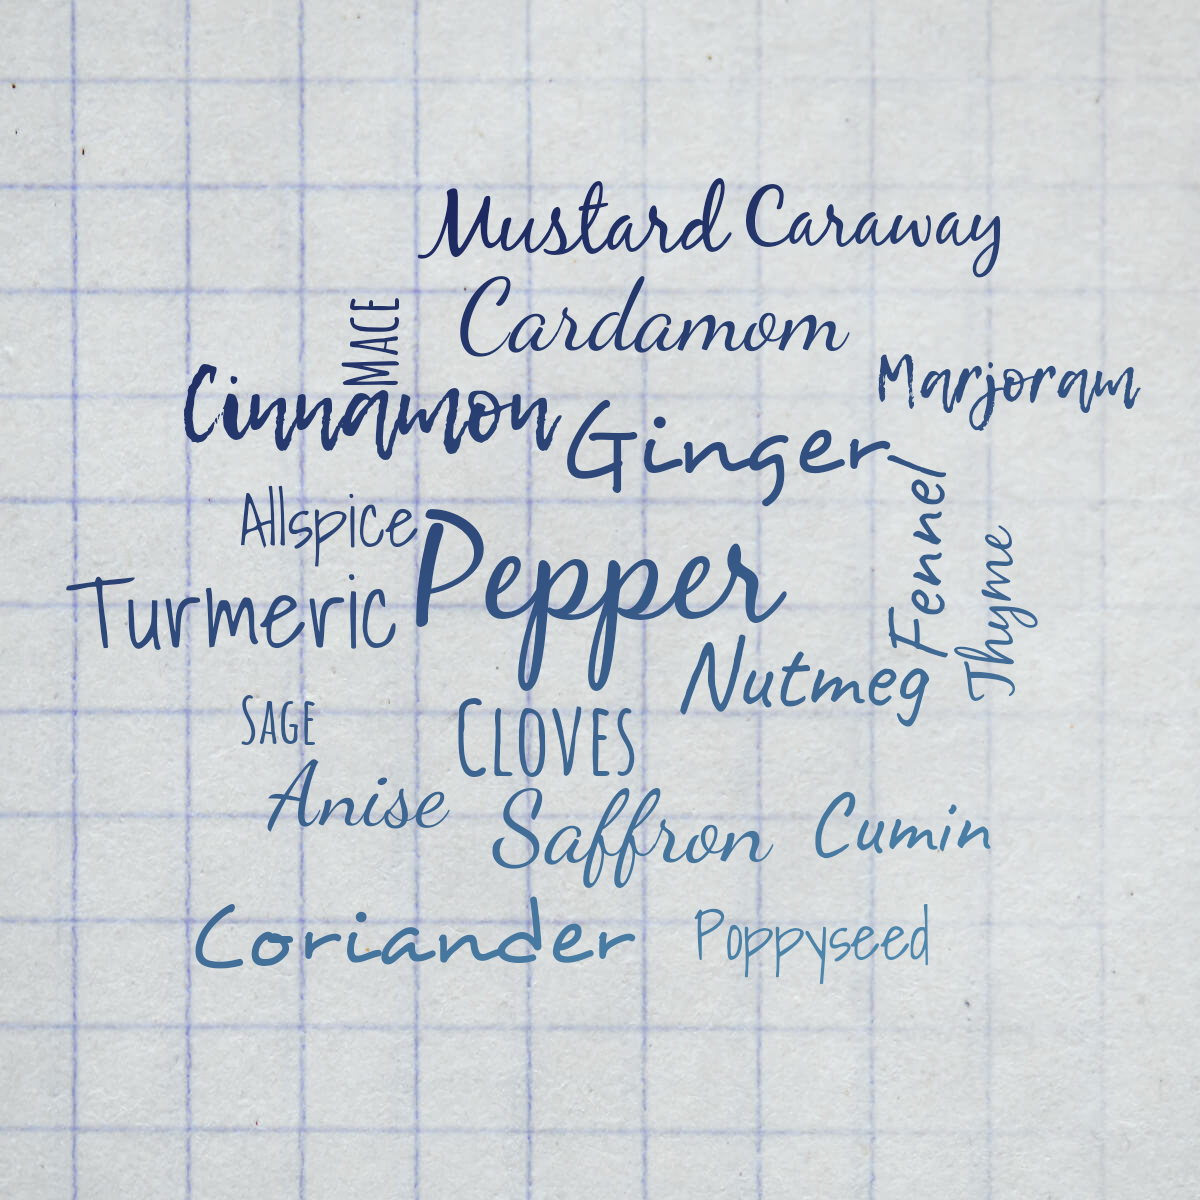 Mustard Caraway
Cardamom
Mace
Marjoram
Cinnamon
Ginger
Fennel
Allspice
Pepper
Thyme
Turmeric
Nutmeg
Sage
Cloves
Anise
Saffron
Cumin
Coriander
Poppyseed